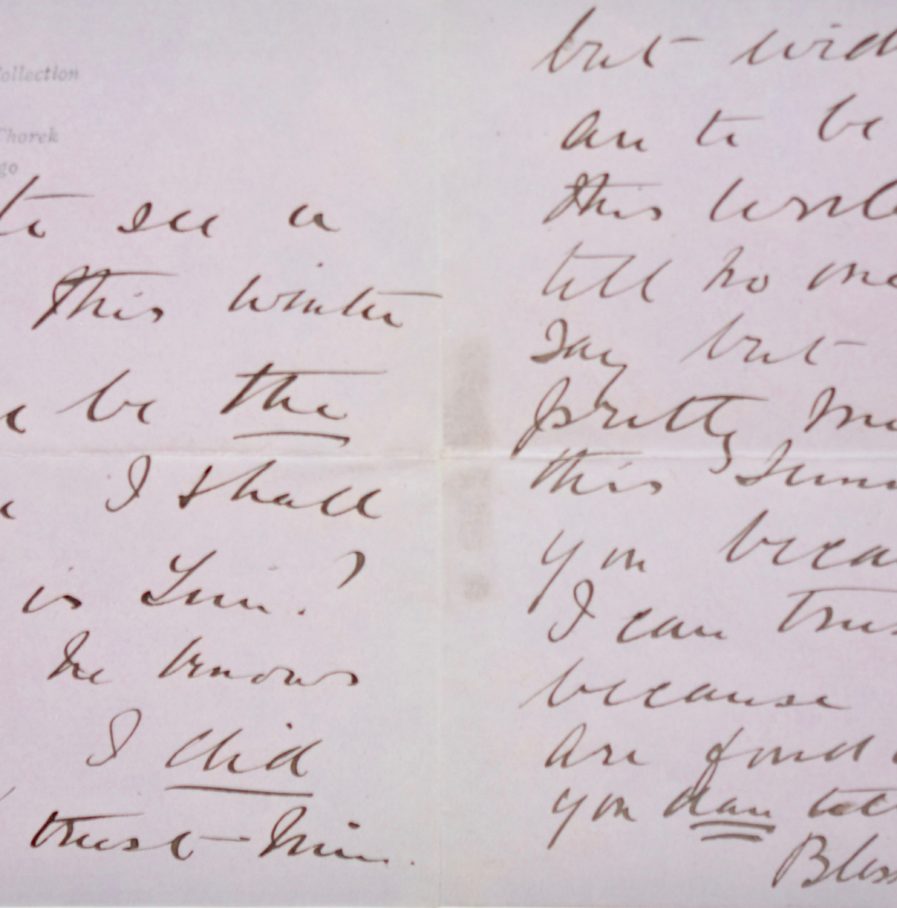 Collection
Thorek
go
to see a
this winter
be the
I shall
is
he knows
I did
trust him.
but wid
are to be
this worl
till no one
say but
pretty
this Summ
you beca
I can trus
because
are fond
you dare tell
Bless